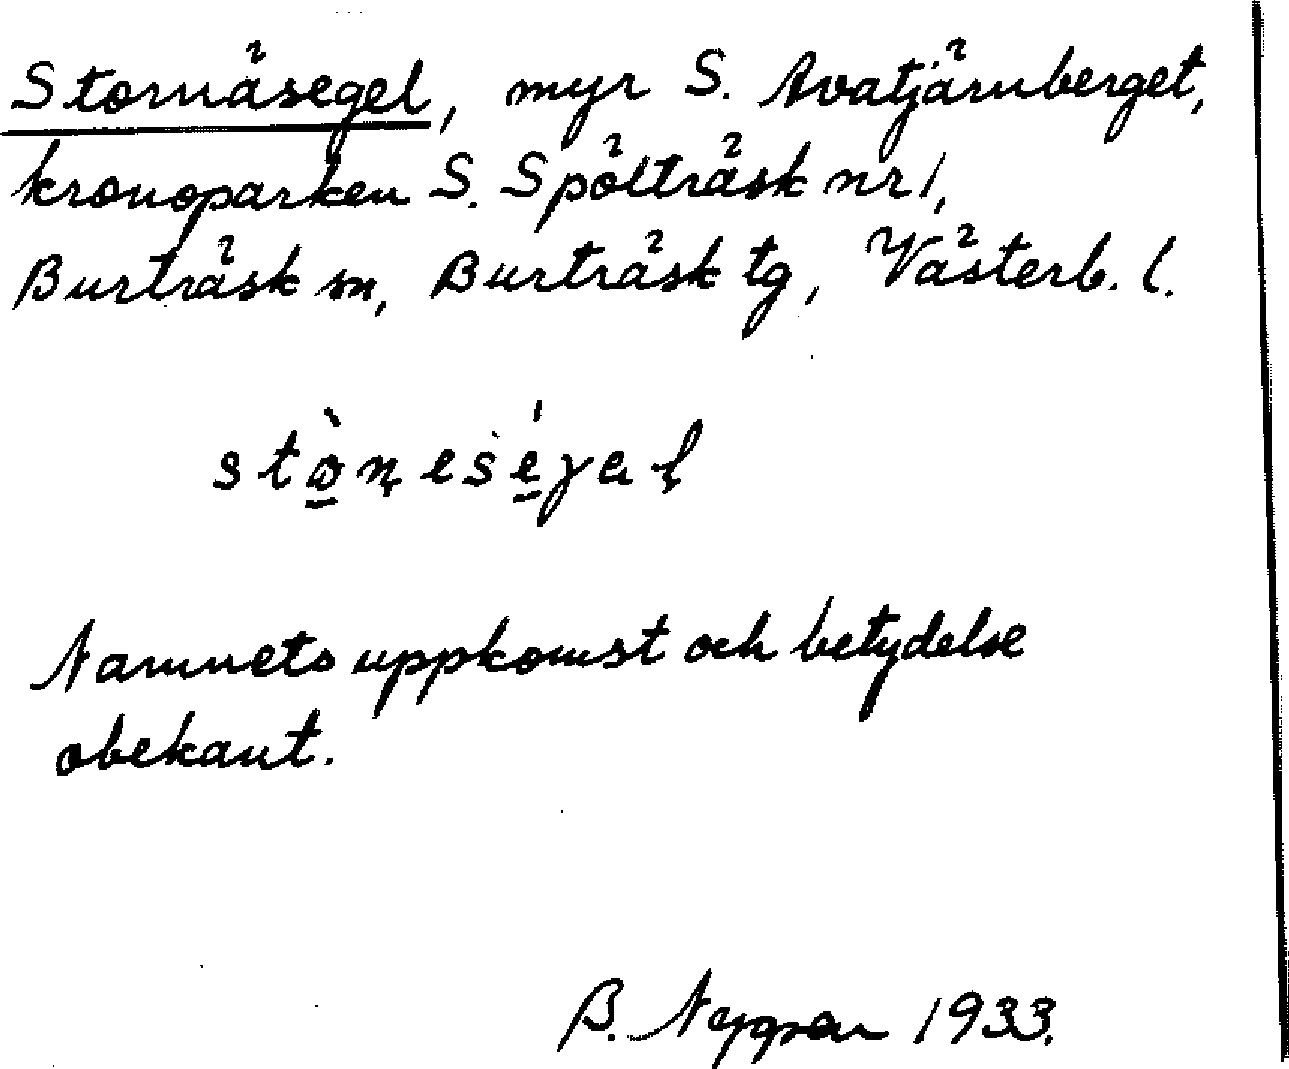 Stornäsegel, myr S. Avatjärnberget,
kronoparken S. Spölträsk nr 1,
Burträsk sn, Burträsk tg, Västerb. l.
Namnets uppkomst och betydelse
obekant.
B. 1933.